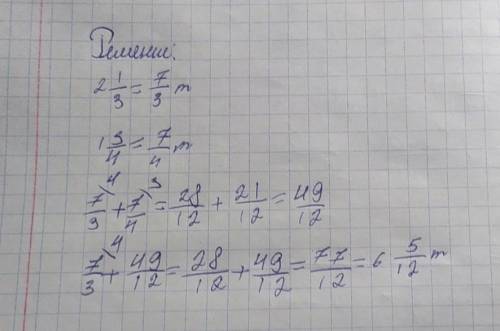 Решение:
2 1/3 = 7/3 т
1 3/4 = 7/4 т
7/3 \4 + 7/4 \3 = 28/12 + 21/12 = 49/12
7/3 \4 + 49/12 = 28/12 + 49/12 = 77/12 = 6 5/12 т